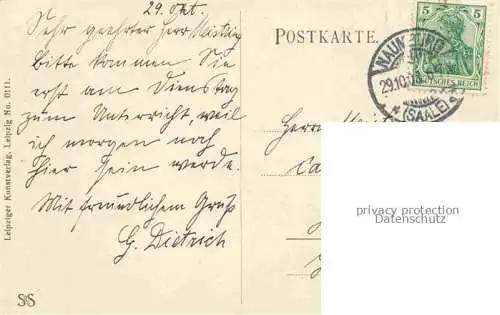 29. Okt.
Sehr geehrter Herr
Bitte kommen Sie
erst am Dienstag
zum Unterricht, weil
ich morgen noch
hier sein werde.
Mit freundlichem Gruß
G. Dietrich
POSTKARTE.
5 5
DEUTSCHES REICH
NAUMBURG
29.10.03
* (SAALE)
Herrn
privacy protection
Datenschutz
Leipziger Kunstverlag, Leipzig No. 0111.
S&S